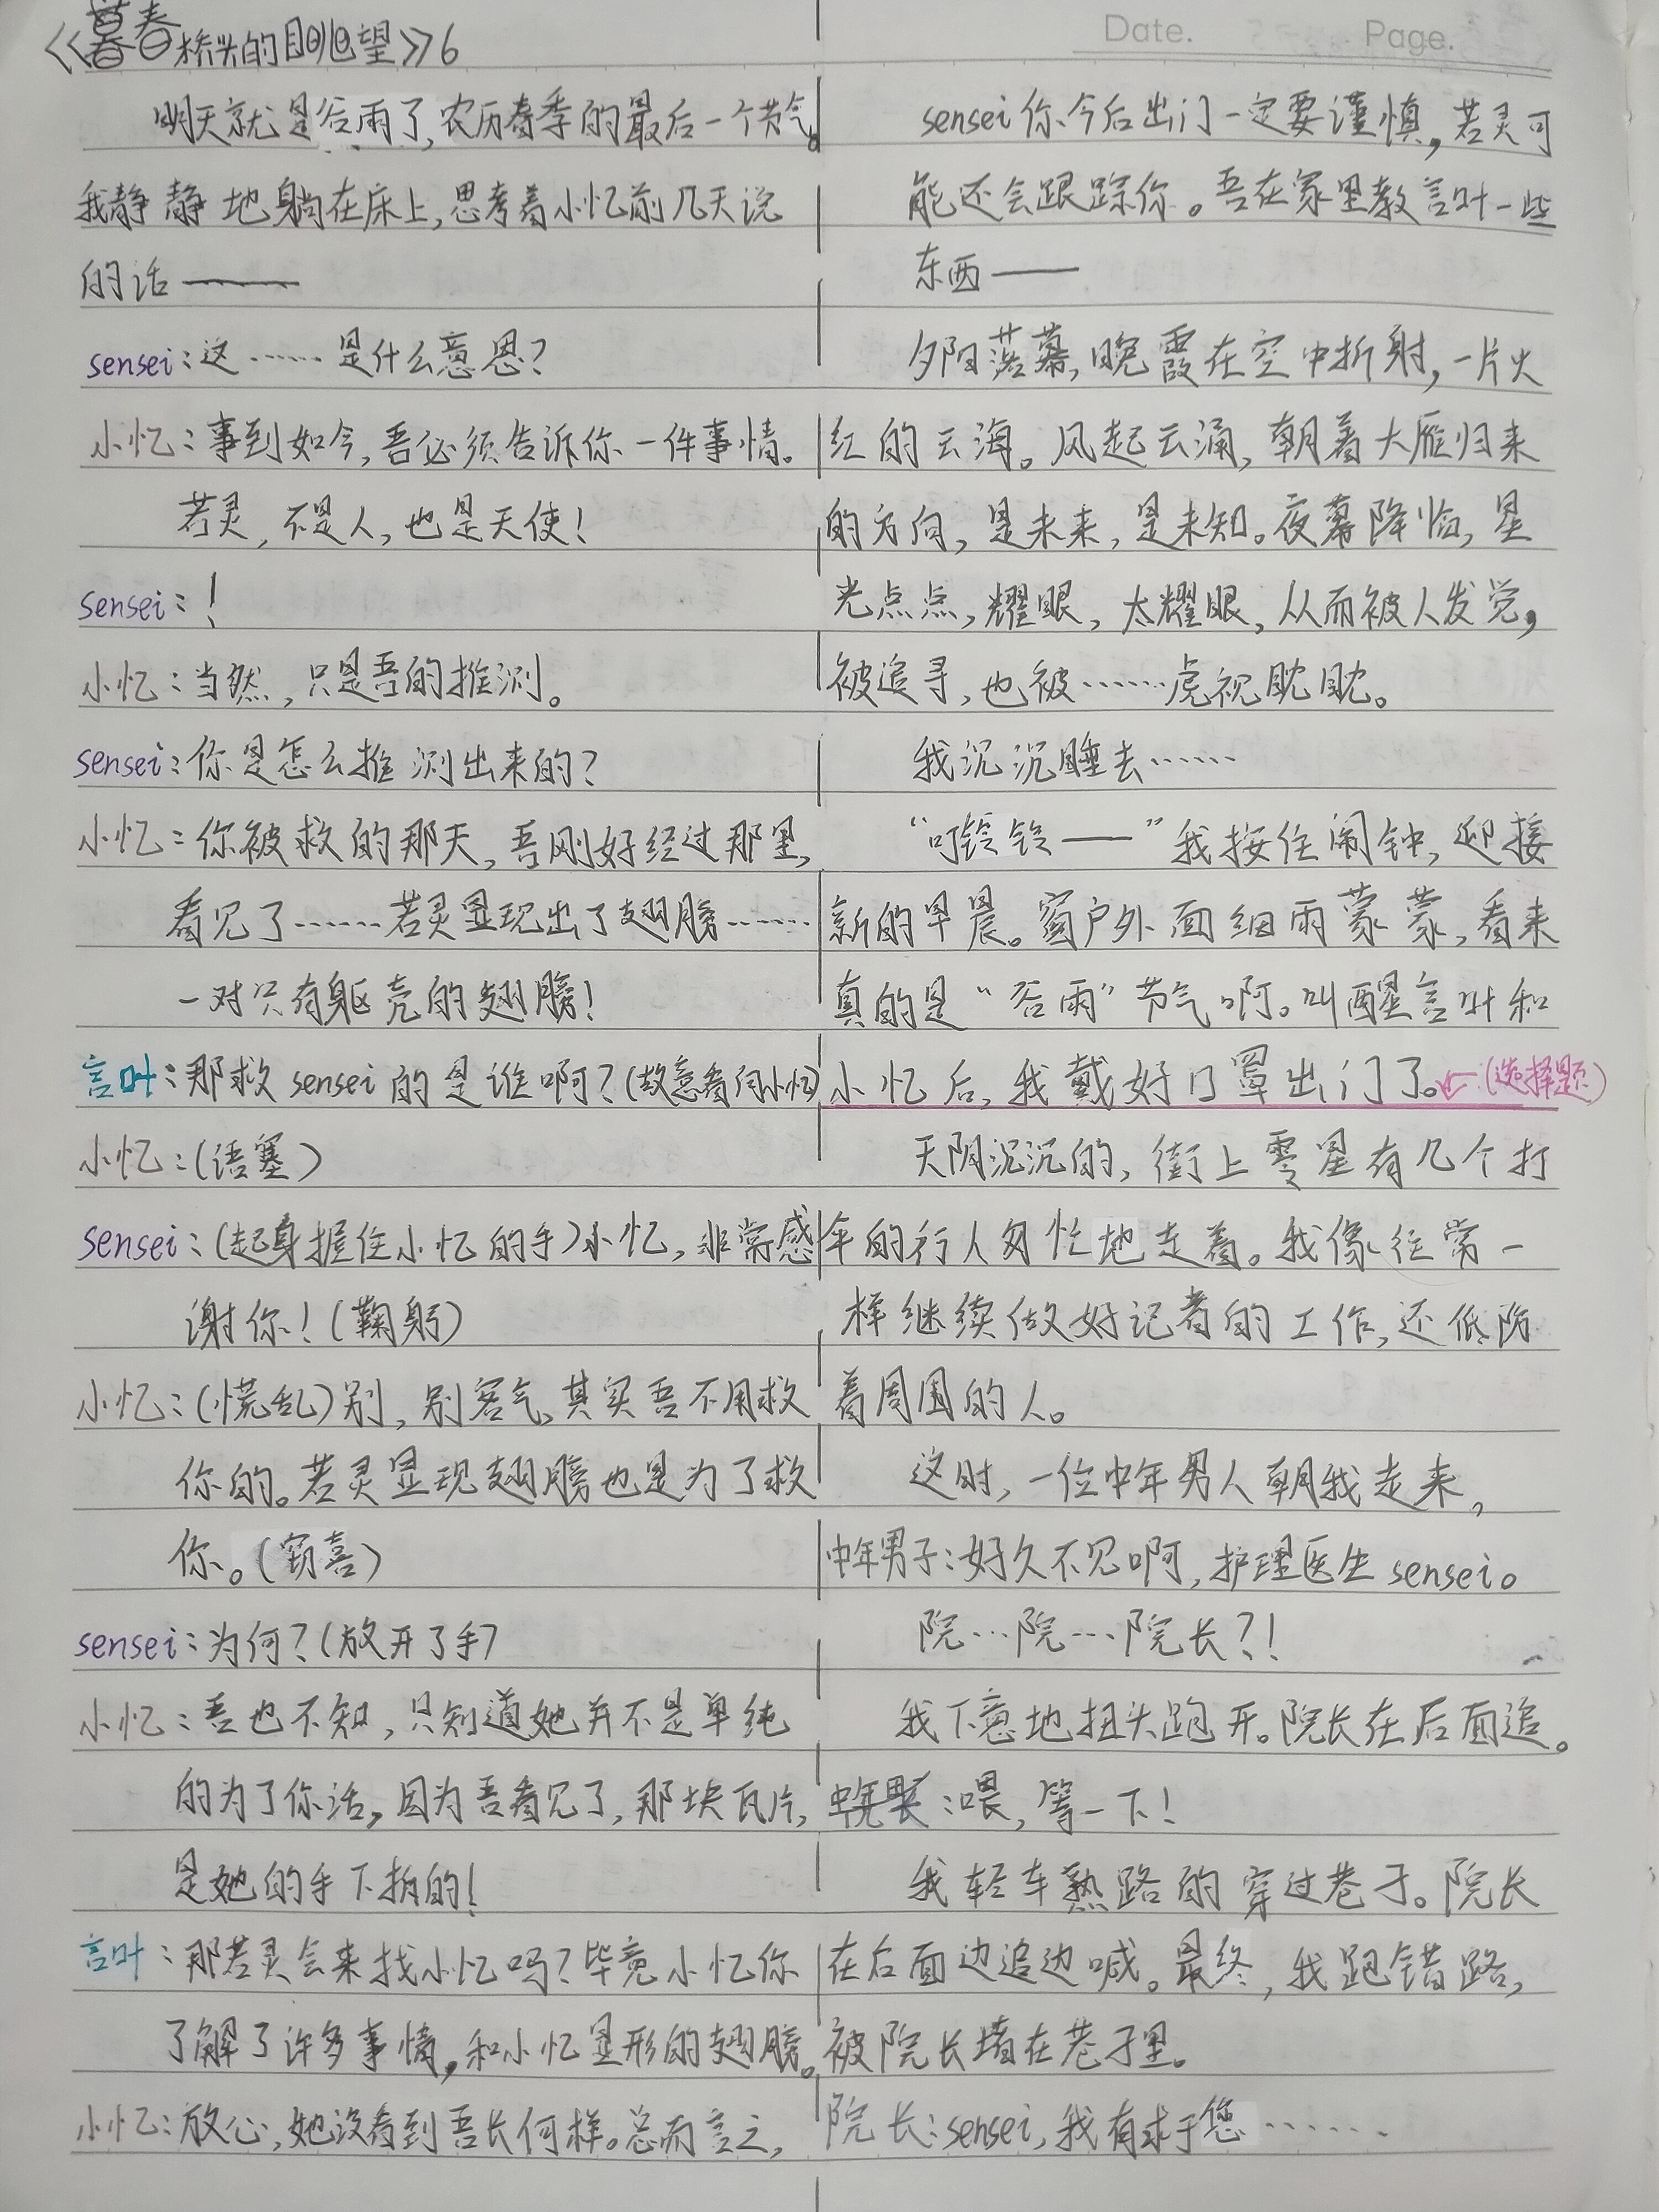 《暮春桥头的眺望》6
Date.
Page.
明天就是谷雨了,农历春季的最后一个节气。
我静静地躺在床上,思考着小忆前几天说
的话——
sensei:这……是什么意思?
小忆:事到如今,吾必须告诉你一件事情。
若灵,不是人,也是天使!
sensei:!
小忆:当然,只是吾的推测。
sensei:你是怎么推测出来的?
小忆:你被救的那天,吾刚好经过那里,
看见了……若灵显现出了翅膀……
一对只有躯壳的翅膀!
言叶:那救sensei的是谁啊?(故意看向小忆)
小忆:(语塞)
sensei:(起身握住小忆的手)小忆,非常感
谢你!(鞠躬)
小忆:(慌乱)别,别客气,其实吾不用救
你的。若灵显现翅膀也是为了救
你。(窃喜)
sensei:为何?(放开了手)
小忆:吾也不知,只知道她并不是单纯
的为了你活,因为吾看见了,那块瓦片,
是她的手下掷的!
言叶:那若灵会来找小忆吗?毕竟小忆你
了解了许多事情,和小忆显形的翅膀。
小忆:放心,她没看到吾长何样。总而言之,
sensei你今后出门一定要谨慎,若灵可
能还会跟踪你。吾在家里教言叶一些
东西——
夕阳落幕,晚霞在空中折射,一片火
红的云海。风起云涌,朝着大雁归来
的方向,是未来,是未知。夜幕降临,星
光点点,耀眼,太耀眼,从而被人发觉,
被追寻,也被……虎视眈眈。
我沉沉睡去……
“叮铃铃——”我按住闹钟,迎接
新的早晨。窗户外面细雨蒙蒙,看来
真的是“谷雨”节气啊。叫醒言叶和
小忆后,我戴好口罩出门了。←(选择题)
天阴沉沉的,街上零星有几个打
伞的行人匆忙地走着。我像往常一
样继续做好记者的工作,还低防
着周围的人。
这时,一位中年男人朝我走来,
中年男子:好久不见啊,护理医生sensei。
院…院…院长?!
我下意地扭头跑开。院长在后面追。
中年男子:喂,等一下!
我轻车熟路的穿过巷子。院长
在后面边追边喊。最终,我跑错路,
被院长堵在巷子里。
院长:sensei,我有求于您……